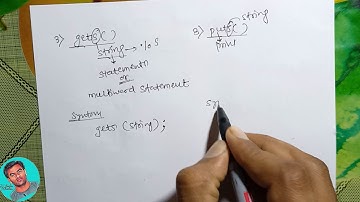 3) gets( )
string → %s
statement
or
multiword statement
Syntax
gets (string);
3) puts( ) string
print
sy